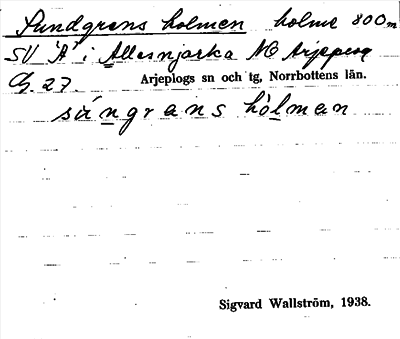 Sundgrens holmen holme 800 m
SV "A" i Allesnjarka NO Arjeplog
G. 27. Arjeplogs sn och tg, Norrbottens län.
sángrans hòlman
Sigvard Wallström, 1938.